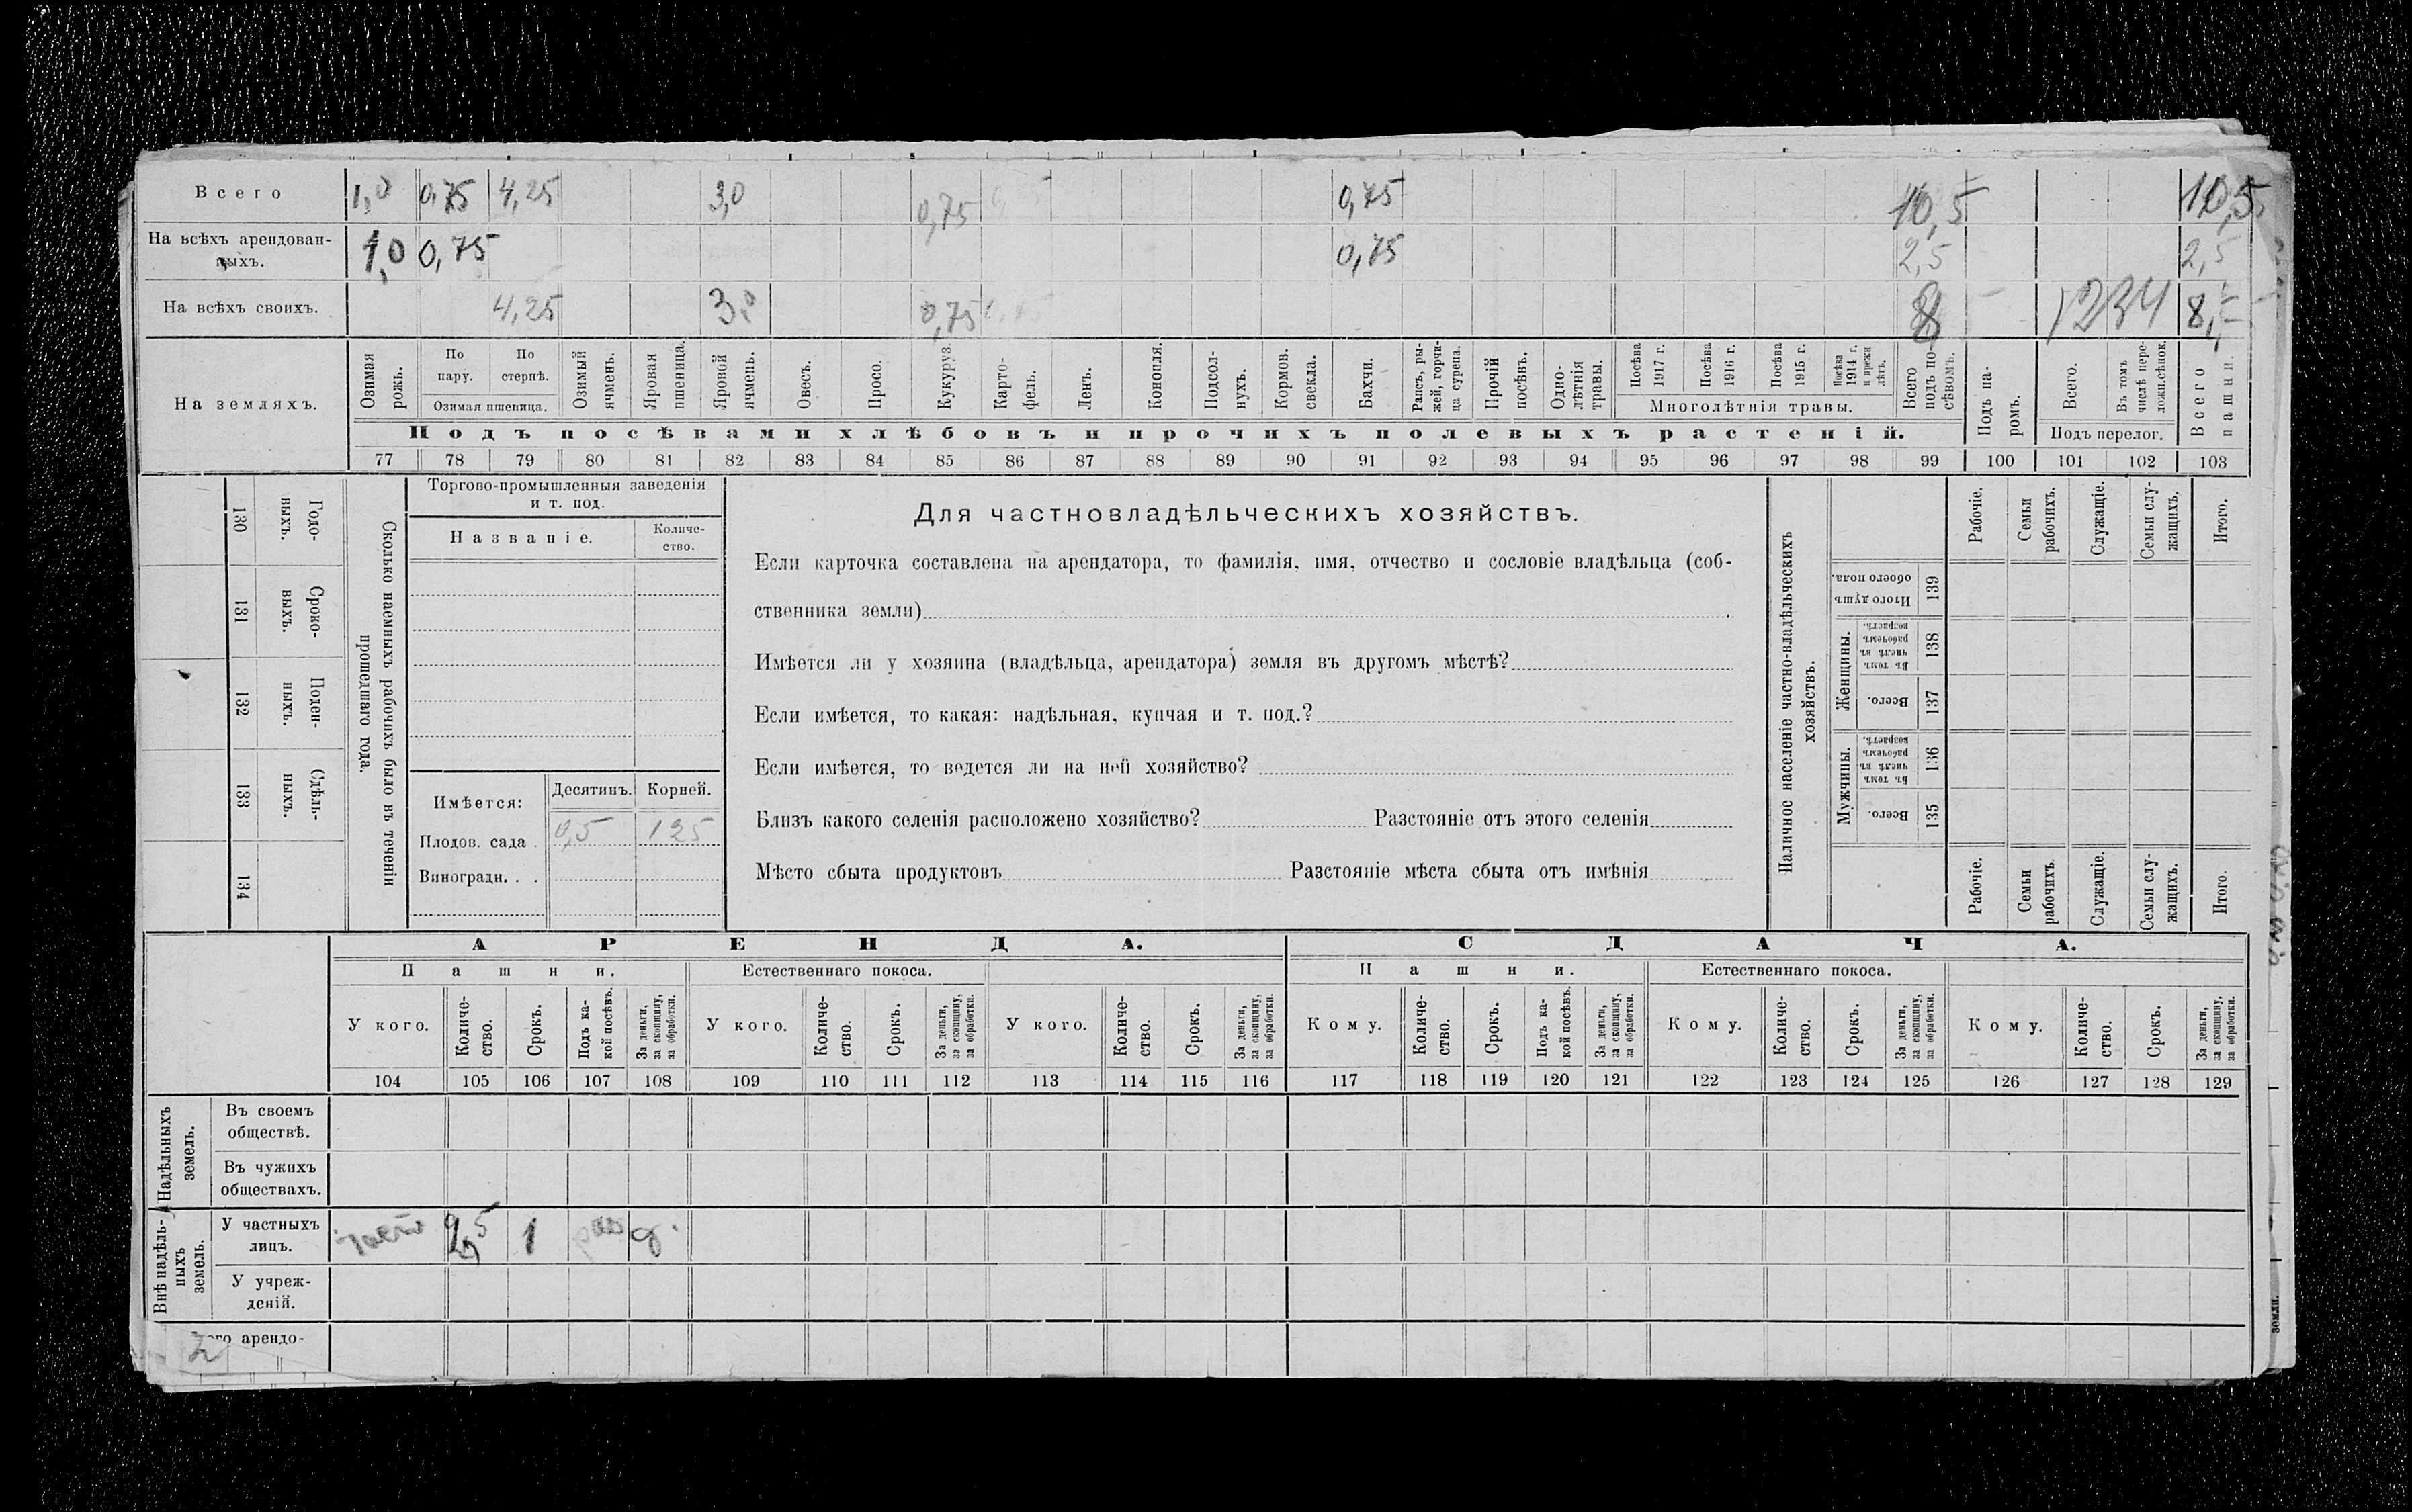 Всего 1,0 0,75 4,25 3,0 0,75 0,75 10,5 10,5
На всѣхъ арендован-
ныхъ. 1,0 0,75 0,75 2,5 2,5
На всѣхъ своихъ. 4,25 3,0 0,75 8 1234 8,
На земляхъ.
Озимая рожь.
По пару.
По стернѣ.
Озимая пшеница.
Озимый ячмень.
Яровая пшеница.
Яровой ячмень.
Овесъ.
Просо.
Кукуруз.
Карто-
фель.
Ленъ.
Конопля.
Подсол-
нухъ.
Кормов. свекла.
Бахчи.
Рапсъ, ры-
жей, горчи-
ца сурепа.
Прочій посѣвъ.
Одно-
лѣтнія травы.
Посѣва 1917 г.
Посѣва 1916 г.
Посѣва 1915 г.
Посѣва 1914 г. и прежн лѣтъ.
Многолѣтнія травы.
Всего подъ по-
сѣвомъ.
Подъ па-
ромъ.
Всего.
Въ томъ числѣ пере-
ложн.сѣнок.
Подъ перелог.
Всего пашни.
Подъ посѣвами хлѣбовъ и прочихъ полевыхъ растеній.
77 78 79 80 81 82 83 84 85 86 87 88 89 90 91 92 93 94 95 96 97 98 99 100 101 102 103
Годо-
выхъ.
130
Сроко-
ныхъ.
131
Поден-
ныхъ.
132
Сдѣль-
ныхъ.
133
134
Сколько наемныхъ рабочихъ было въ теченіи
прошедшаго года.
Торгово-промышленныя заведенія
и т. под.
Названіе.
Количе-
ство.
Имѣется:
Десятинъ. Корней.
Плодов. сада . 0,5 125
Виноградн. . .
Для частновладѣльческихъ хозяйствъ.
Если карточка составлена на арендатора, то фамилія, имя, отчество и сословіе владѣльца (соб-
ственника земли)
Имѣется ли у хозяина (владѣльца, арендатора) земля въ другомъ мѣстѣ?
Если имѣется, то какая: надѣльная, купчая и т. под.?
Если имѣется, то ведется ли на ней хозяйство?
Близъ какого селенія расположено хозяйство? Разстояніе отъ этого селенія
Мѣсто сбыта продуктовъ Разстояніе мѣста сбыта отъ имѣнія
Наличное населеніе частно-владѣльческихъ
хозяйствъ.
Рабочіе.
Семьи рабочихъ.
Служащіе.
Семьи слу-
жащихъ.
Итого.
Итого душъ обоего пола.
139
Женщины.
Въ томъ числѣ въ рабочемъ возрастѣ.
138
Всего.
137
Мужчины.
Въ томъ числѣ въ рабочемъ возрастѣ.
136
Всего.
135
Рабочіе.
Семьи рабочихъ.
Служащіе.
Семьи слу-
жащихъ.
Итого.
АРЕНДА. СДАЧА.
Пашни. Естественнаго покоса. Пашни. Естественнаго покоса.
У кого.
Количе-
ство.
Срокъ.
Подъ ка-
кой посѣвъ.
За деньги, за скопщину, за обработки.
У кого.
Количе-
ство.
Срокъ.
За деньги, за скопщину, за обработки.
У кого.
Количе-
ство.
Срокъ.
За деньги, за скопщину, за обработки.
Кому.
Количе-
ство.
Срокъ.
Подъ ка-
кой посѣвъ.
За деньги, за скопщину, за обработки.
Кому.
Количе-
ство.
Срокъ.
За деньги, за скопщину, за обработки.
Кому.
Количе-
ство.
Срокъ.
За деньги, за скопщину, за обработки.
104 105 106 107 108 109 110 111 112 113 114 115 116 117 118 119 120 121 122 123 124 125 126 127 128 129
Надѣльныхъ
земель.
Въ своемъ
обществѣ.
Въ чужихъ
обществахъ.
Внѣ надѣль-
ныхъ
земель.
У частныхъ
лицъ. 1
У учреж-
деній.
арендо-
2
земли.